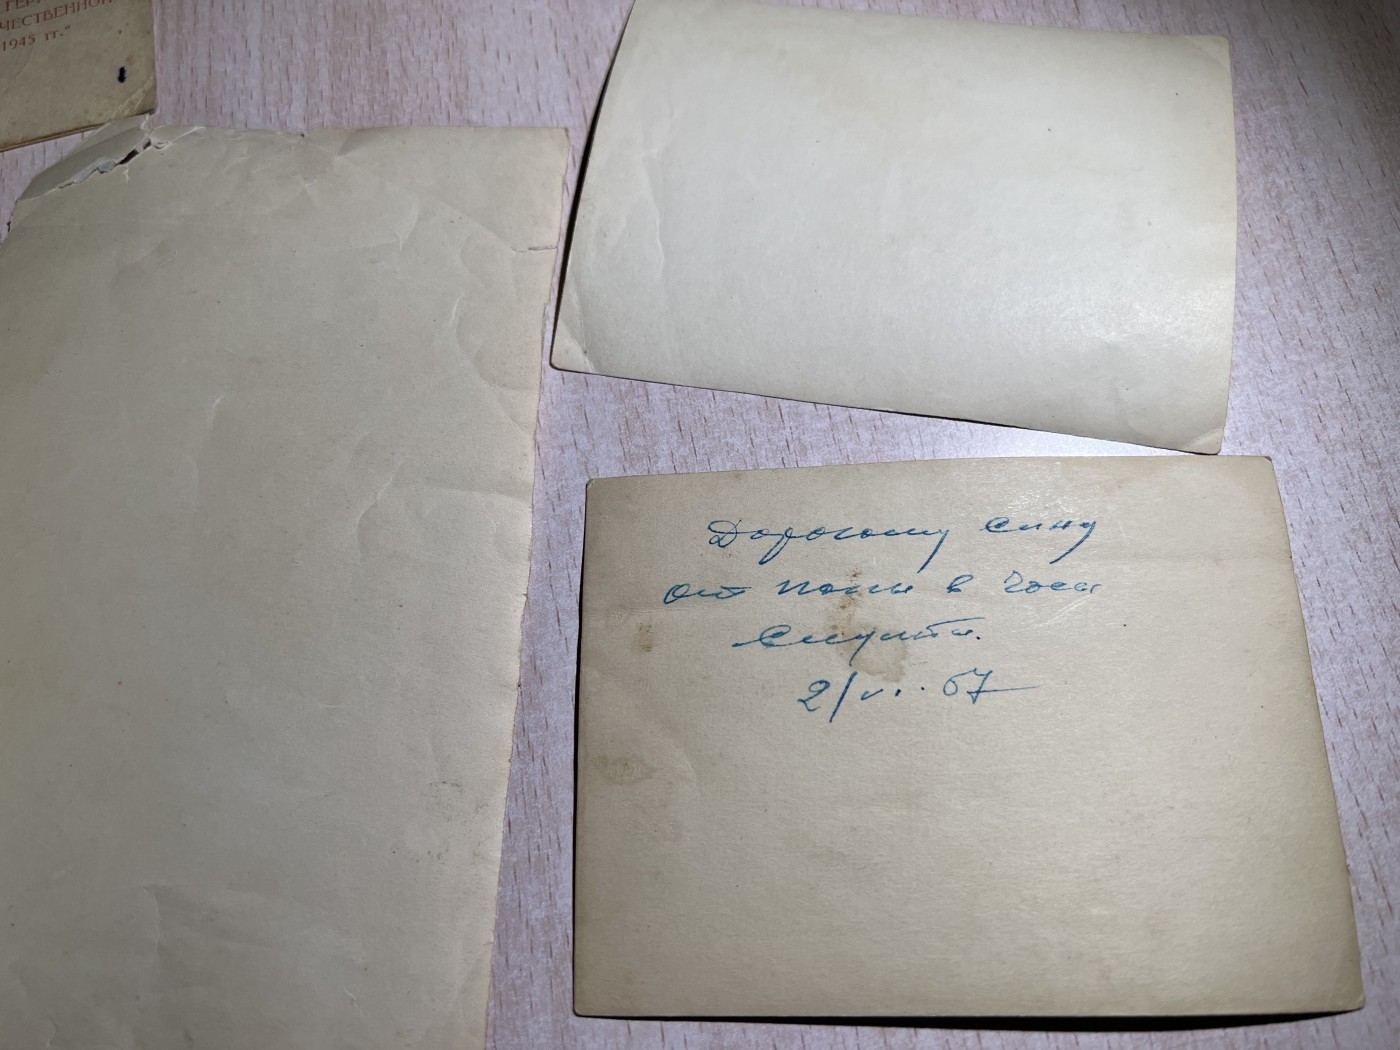 ЧЕСТВЕННОЙ
1945 гг."
Дорогому сыну
от папы в часы
смутн.
2/VI. 67